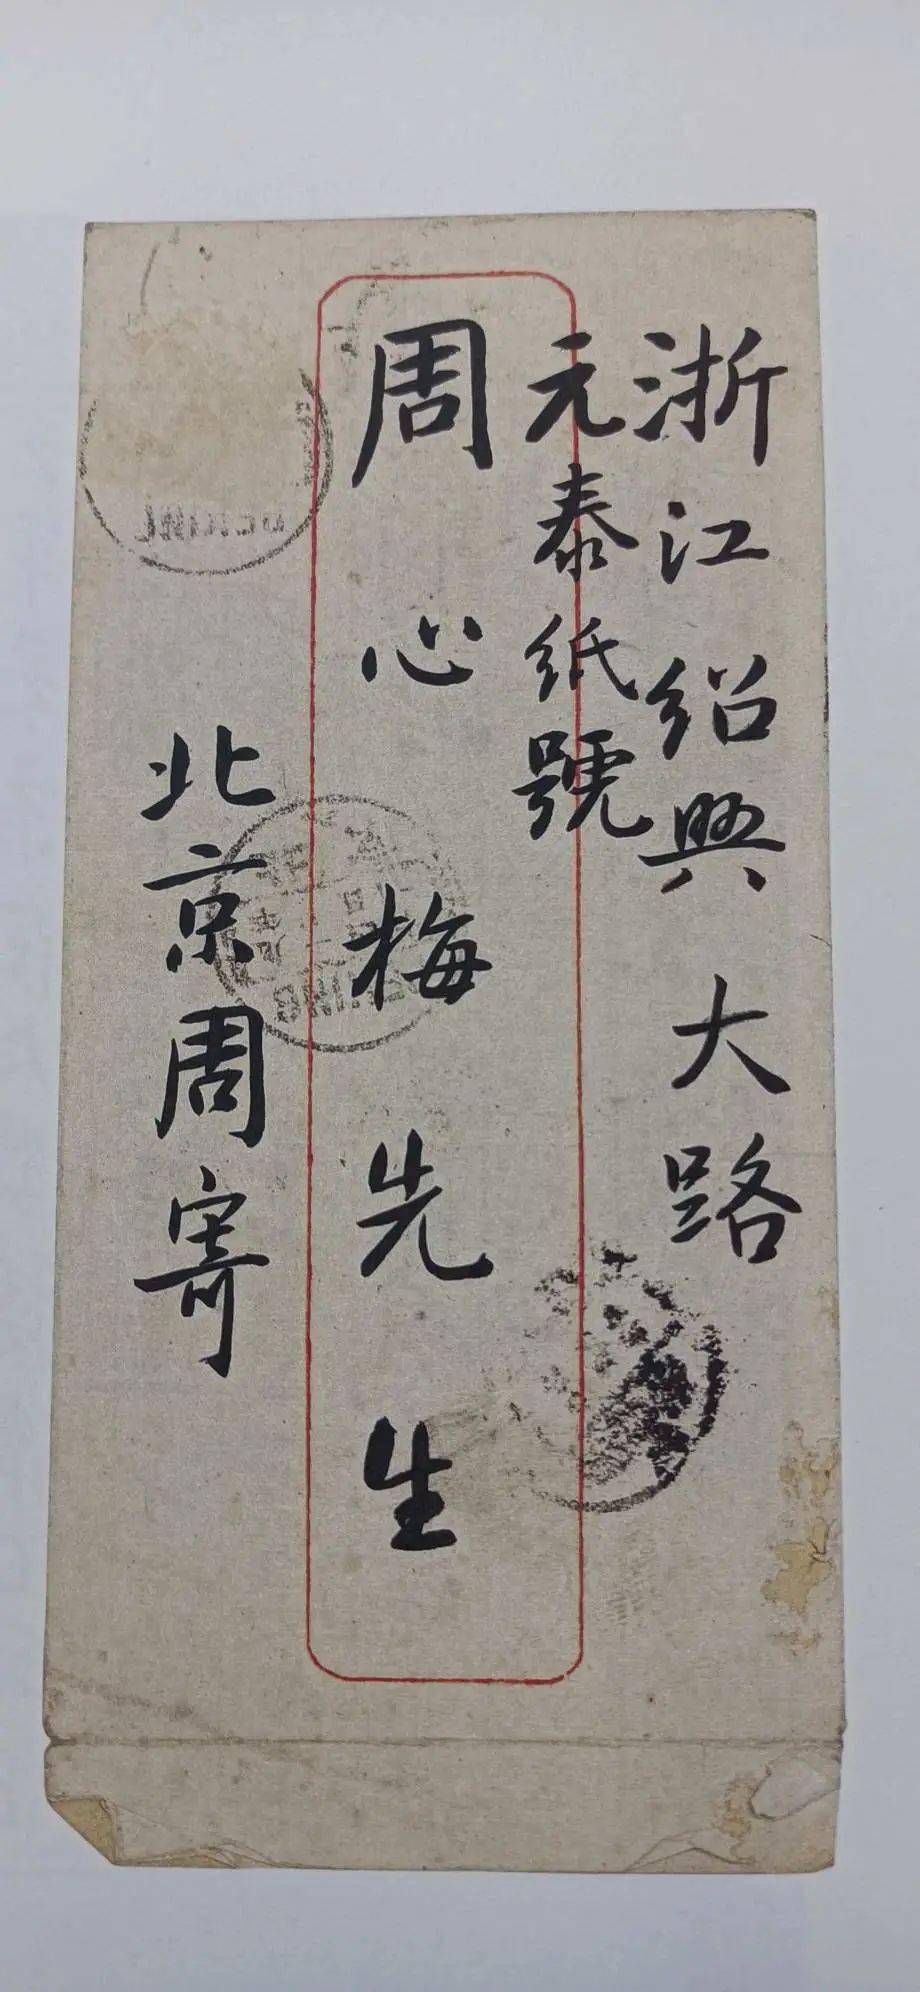 浙江紹興大路
元泰紙號
周心梅先生
北京周寄